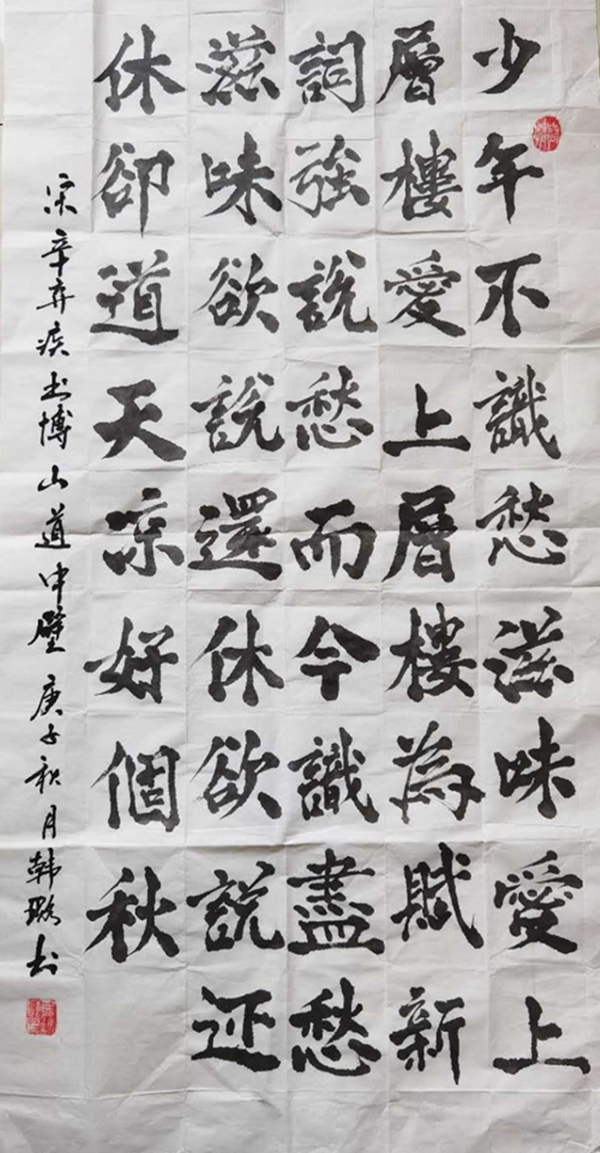 少年不識愁滋味愛上
層樓愛上層樓為賦新
詞強說愁而今識盡愁
滋味欲說還休欲說还
休卻道天涼好個秋
宋辛弃疾书博山道中壁庚子秋月韩璐书